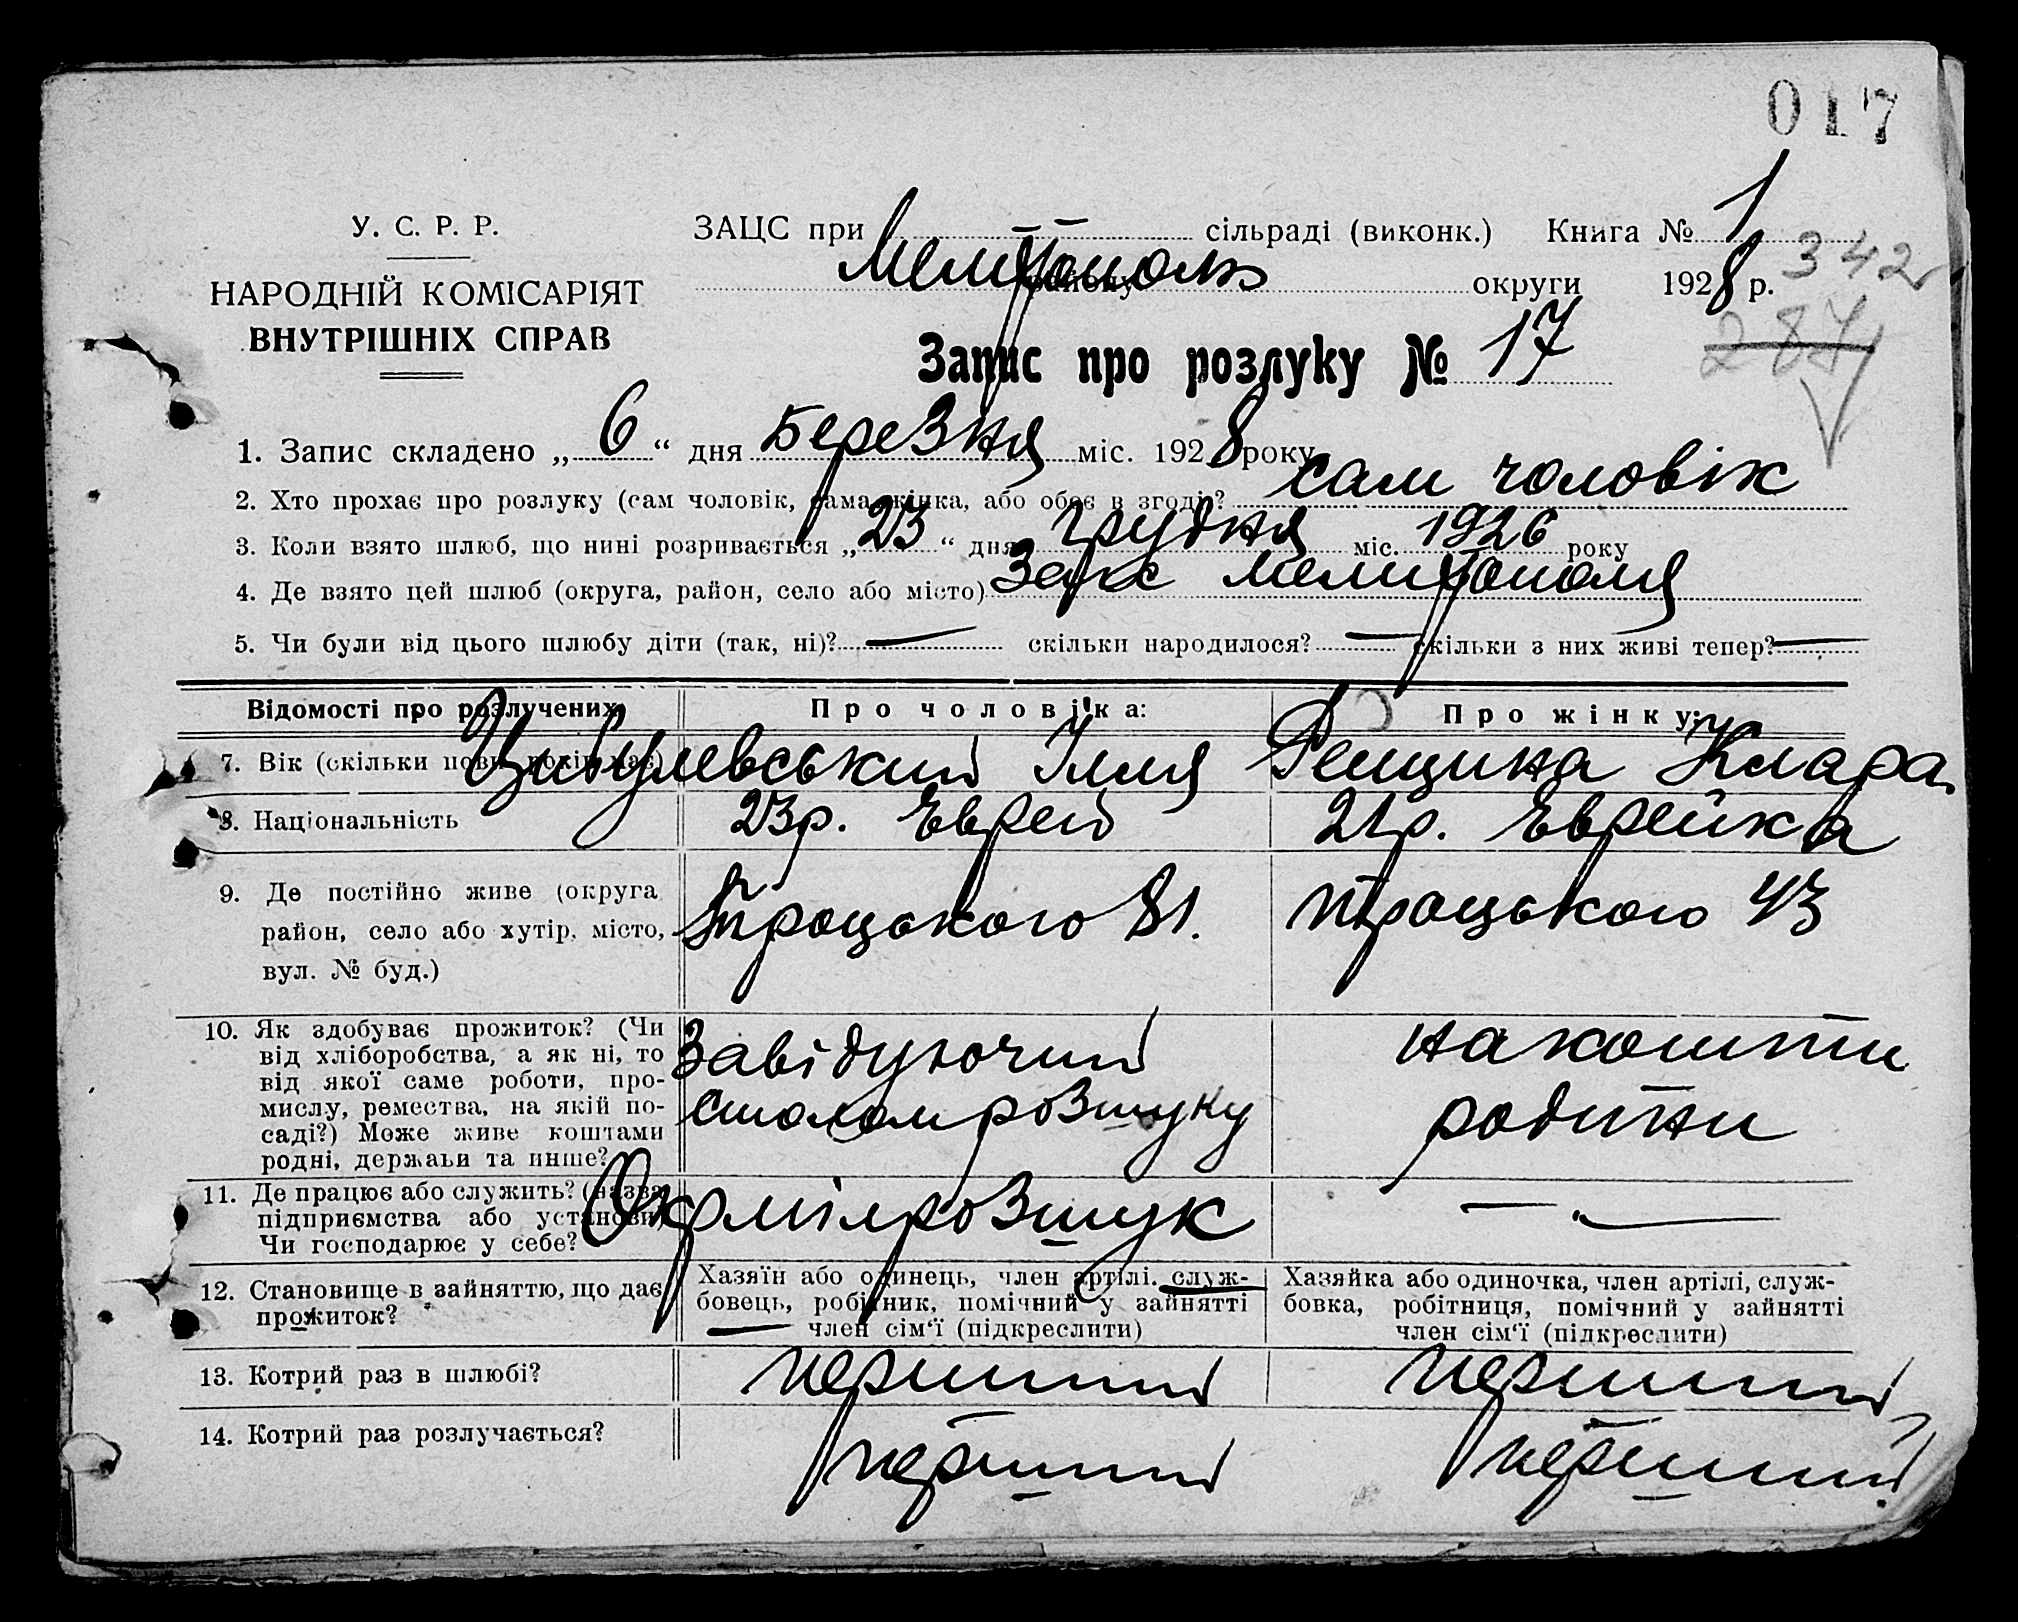 017
У. С. Р. Р.
НАРОДНІЙ КОМІСАРІЯТ
ВНУТРІШНІХ СПРАВ
ЗАЦС при сільраді (виконк.) Книга № 1
Мелітополь району округи 1928 р. 342
Запис про розлуку № 17
287
1. Запис складено „ 6 “ дня Березня міс. 1928 року
2. Хто прохає про розлуку (сам чоловік, сама жінка, або обоє в згоді)? сам чоловік
3. Коли взято шлюб, що нині розривається „ 23 “ дня грудня міс. 1926 року
4. Де взято цей шлюб (округа, район, село або місто) Загс Мелитополя
5. Чи були від цього шлюбу діти (так, ні)? — скільки народилося? — скільки з них живі тепер? —
Відомості про розлучених Про чоловіка: Про жінку:
Цибулевський Ілля Рещина Клара
7. Вік (скільки повн. років має)
8. Національність 23р. Еврей 21р. Еврейка
9. Де постійно живе (округа
район, село або хутір, місто,
вул. № буд.)
Троцького 81. Троцького 43
10. Як здобуває прожиток? (Чи
від хліборобства, а як ні, то
від якої саме роботи, про-
мислу, ремества, на якій по-
саді?) Може живе коштами
родні, держави та инше?
Завідуючий
столом розшуку
на кошти
родини
11. Де працює або служить? (назва
підприємства або установи)
Чи господарює у себе?
Окрмілрозшук —
12. Становище в зайняттю, що дає
прожиток?
Хазяїн або одинець, член артілі, служ-
бовець, робітник, помічний у зайнятті
член сім‘ї (підкреслити)
Хазяйка або одиночка, член артілі, служ-
бовка, робітниця, помічний у зайнятті
член сім‘ї (підкреслити)
13. Котрий раз в шлюбі? перший перший
14. Котрий раз розлучається? перший перший